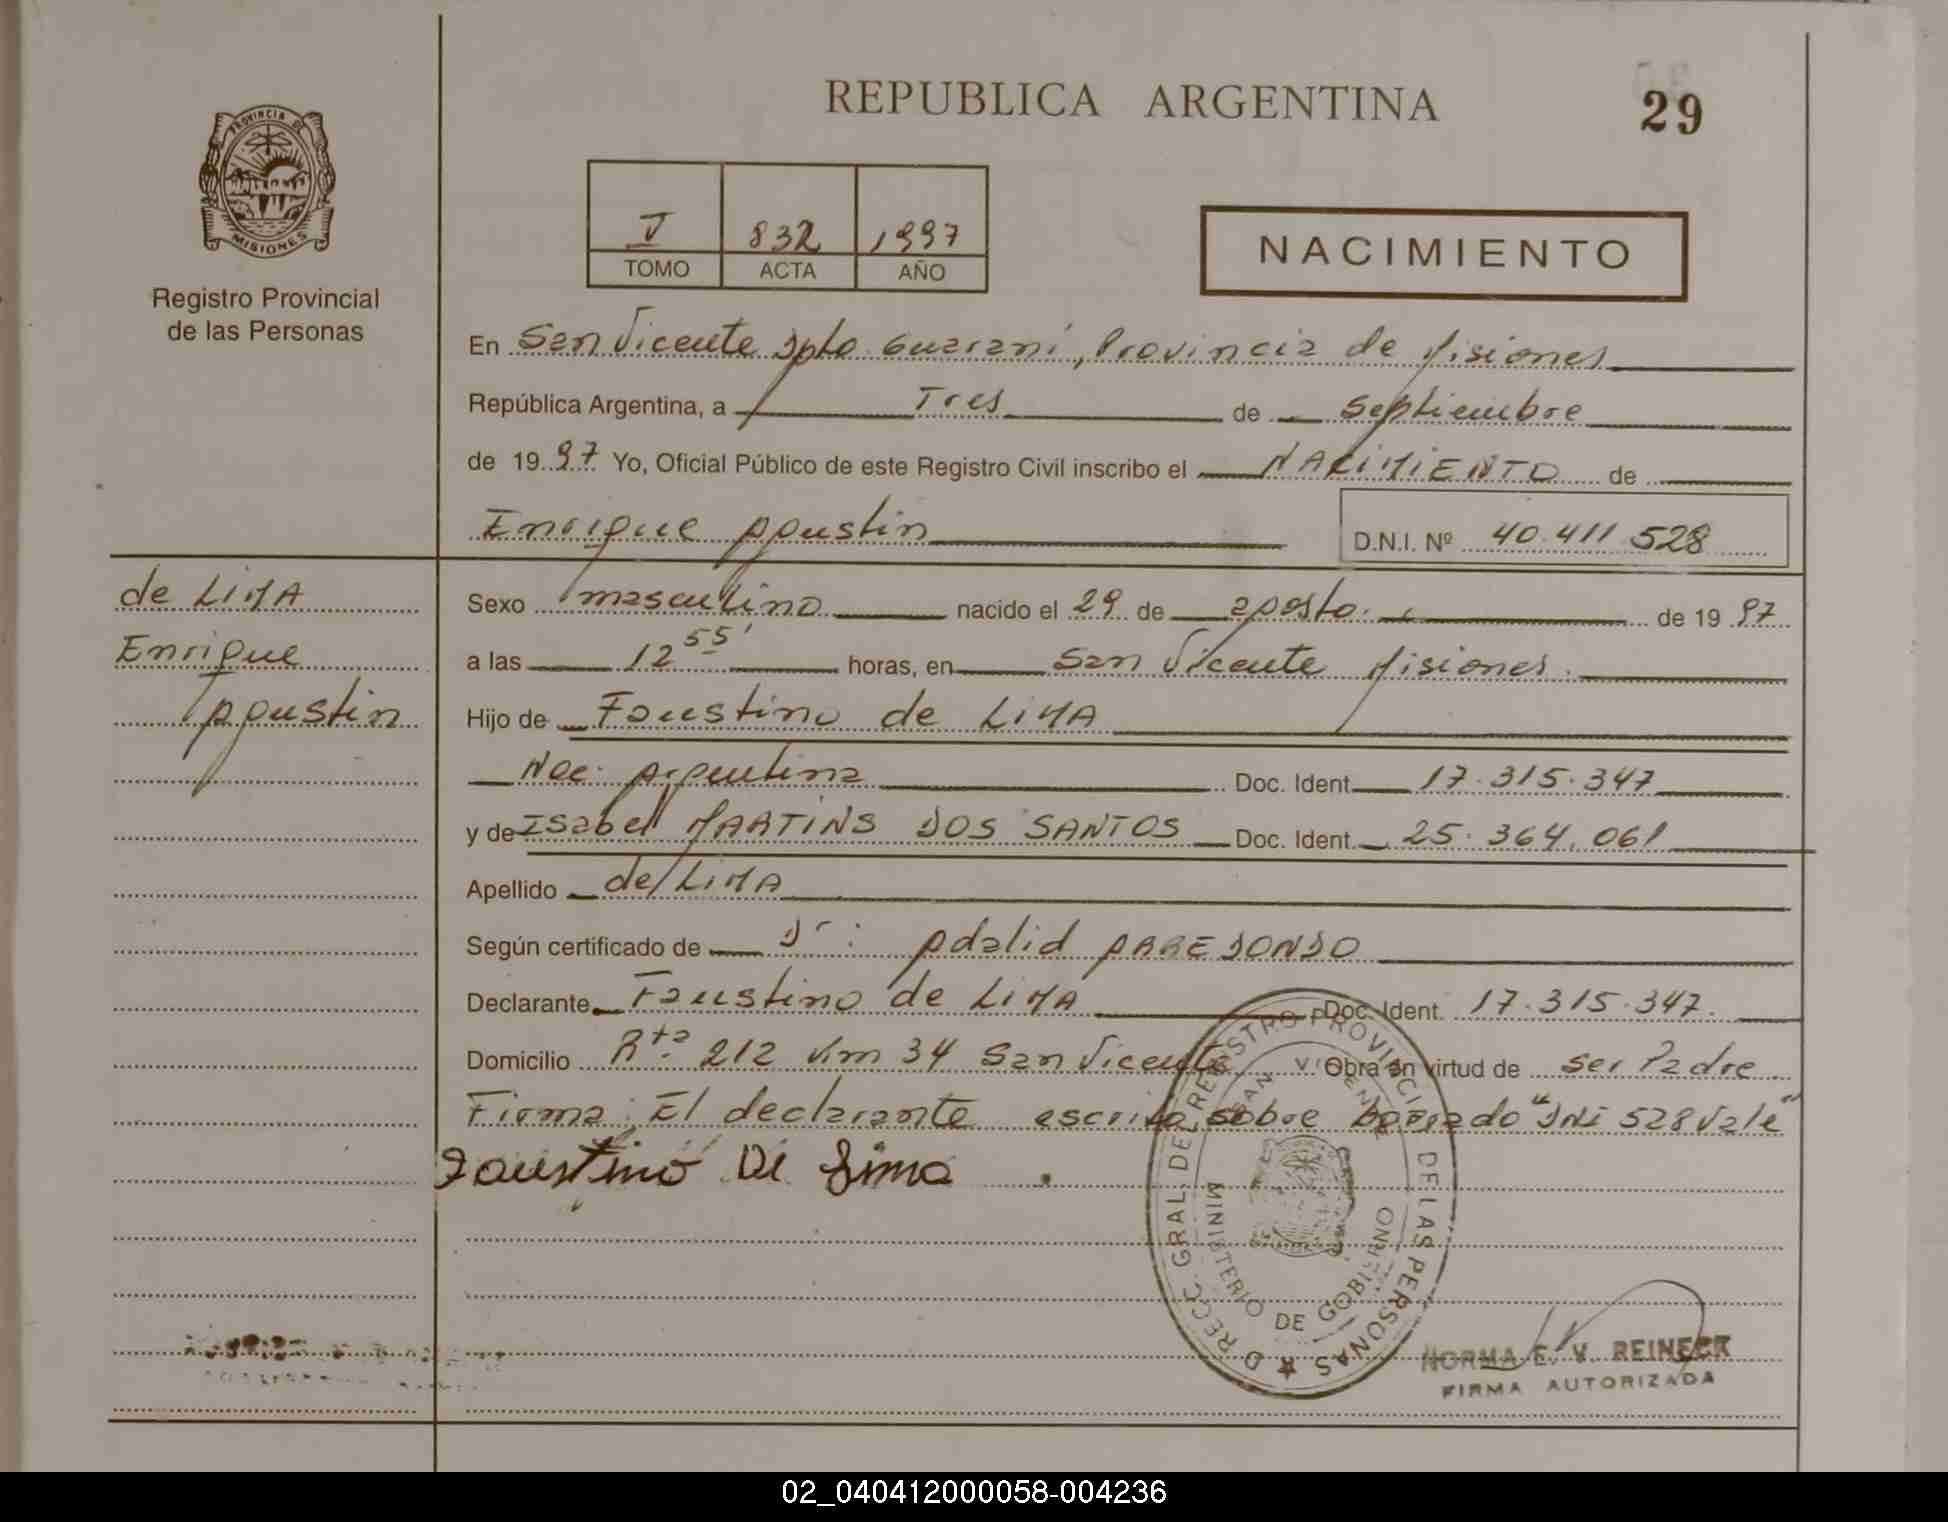 REPUBLICA ARGENTINA
29
PROVINCIA DE
MISIONES
Registro Provincial
de las Personas
V 832 1997
TOMO ACTA AÑO
NACIMIENTO
En San Vicente Dpto. Guarani, Provincia de Misiones
República Argentina, a Tres de Septiembre
de 1997 Yo, Oficial Público de este Registro Civil inscribo el NACIMIENTO de
Enrique Agustin D.N.I. Nº 40.411 528
de LIMA
Enrique
Agustin
Sexo masculino nacido el 29 de agosto de 1997
a las 12 55' horas, en San Vicente Misiones.
Hijo de Faustino de LIMA
Nac. Argentina Doc. Ident. 17.315.347
y de Isabel MARTINS DOS SANTOS Doc. Ident. 25.364.061
Apellido de LIMA
Según certificado de Dr: Adalid ARREDONDO
Declarante Faustino de LIMA Doc. Ident. 17.315.347.
Domicilio Rta 212 Km 34 San Vicente Obra en virtud de ser Padre
Firma: El declarante escrito sobre borrado "DNI 528 Vale"
Faustino De Lima
DIRECC. GRAL. DEL REGISTRO PROVINCIAL DE LAS PERSONAS
SAN VICENTE
MINISTERIO DE GOBIERNO
NORMA E. V. REINECK
FIRMA AUTORIZADA
02_040412000058-004236